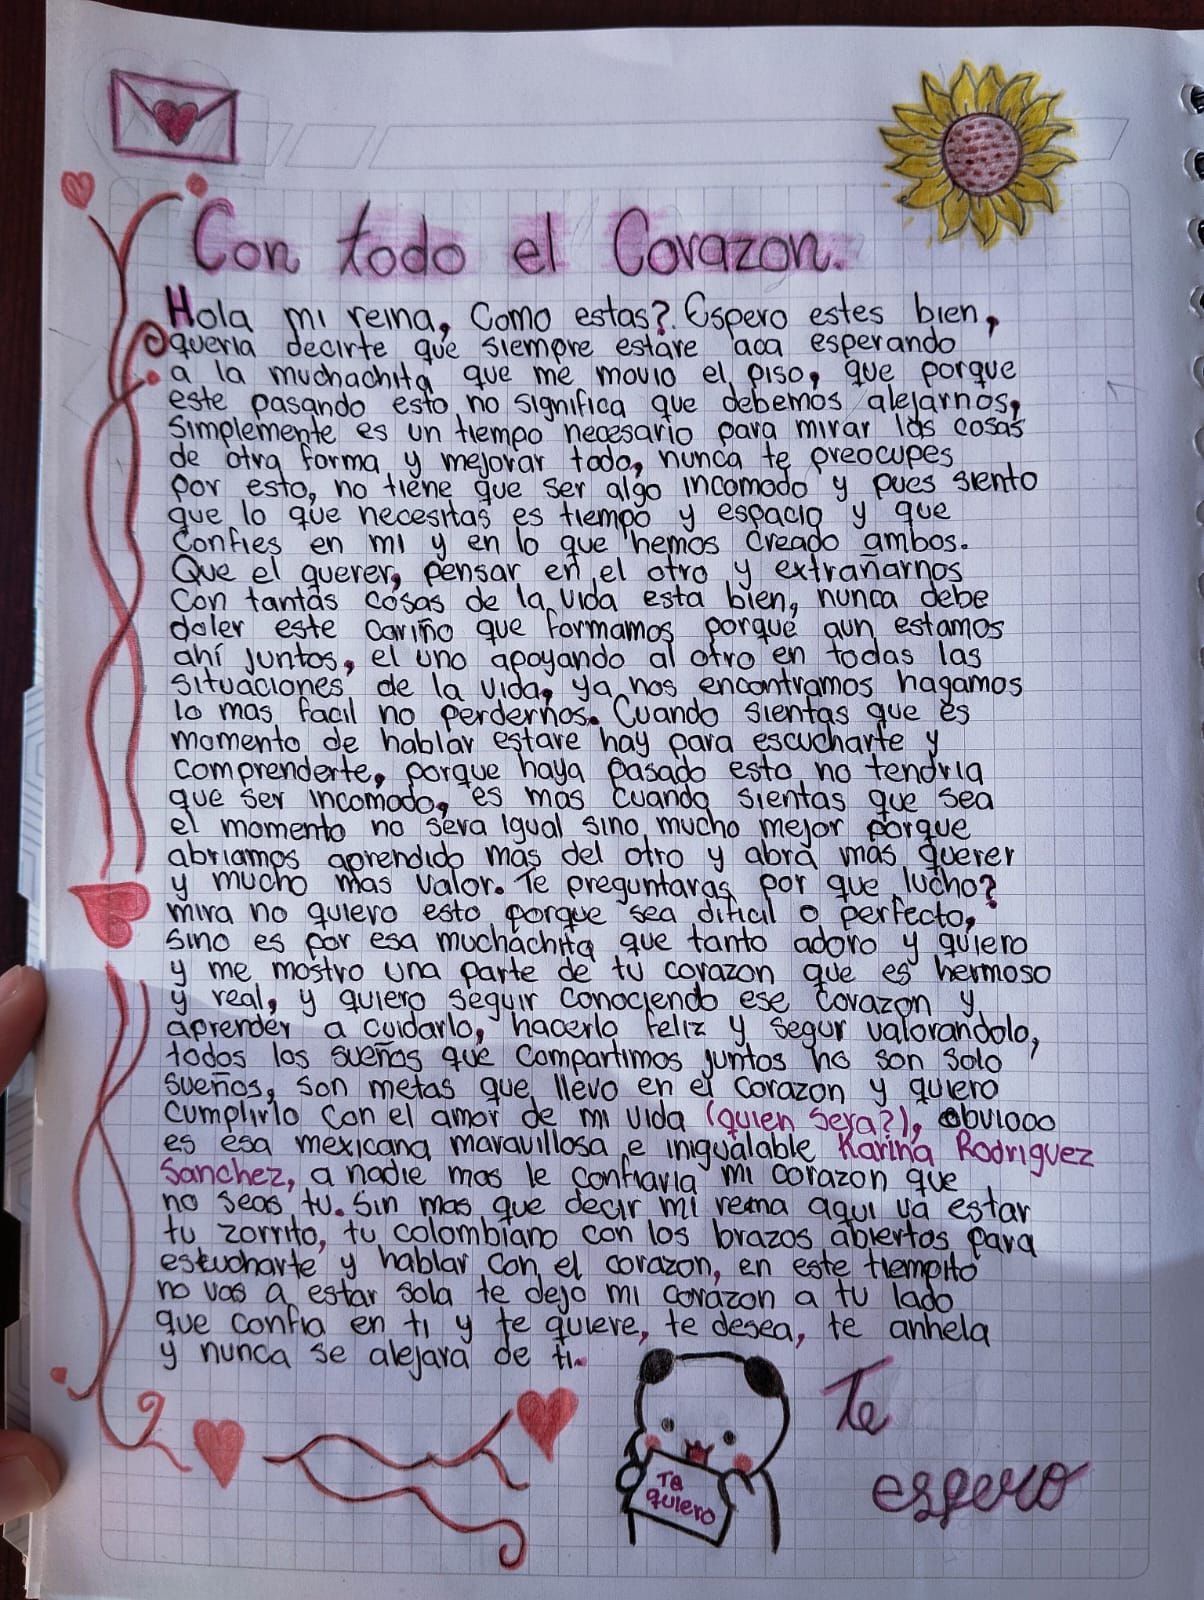 Con todo el Corazon.
Hola mi reina, Como estas?. Espero estes bien,
queria decirte que siempre estare aca esperando
a la muchachita que me movio el piso, que porque
este pasando esto no significa que debemos alejarnos,
simplemente es un tiempo necesario para mirar las cosas
de otra forma y mejorar todo, nunca te preocupes
por esto, no tiene que ser algo incomodo y pues siento
que lo que necesitas es tiempo y espacio y que
confies en mi y en lo que hemos creado ambos.
Que el querer, pensar en el otro y extrañarnos
con tantas cosas de la vida esta bien, nunca debe
doler este cariño que formamos porque aun estamos
ahí juntos, el uno apoyando al otro en todas las
situaciones de la vida, ya nos encontramos hagamos
lo mas facil no perdernos. Cuando sientas que es
momento de hablar estare hay para escucharte y
comprenderte, porque haya pasado esto no tendria
que ser incomodo, es mas cuando sientas que sea
el momento no sera igual sino mucho mejor porque
abriamos aprendido mas del otro y abra mas querer
y mucho mas valor. Te preguntaras por que lucho?
mira no quiero esto porque sea dificil o perfecto,
sino es por esa muchachita que tanto adoro y quiero
y me mostro una parte de tu corazon que es hermoso
y real, y quiero seguir conociendo ese corazon y
aprender a cuidarlo, hacerlo feliz y segur valorandolo,
todos los sueños que compartimos juntos no son solo
sueños, son metas que llevo en el corazon y quiero
cumplirlo con el amor de mi vida (quien sera?), obviooo
es esa mexicana maravillosa e inigualable Karina Rodriguez
Sanchez, a nadie mas le confiaria mi corazon que
no seas tu. Sin mas que decir mi reina aqui va estar
tu zorrito, tu colombiano con los brazos abiertos para
escucharte y hablar con el corazon, en este tiempito
no vas a estar sola te dejo mi corazon a tu lado
que confia en ti y te quiere, te desea, te anhela
y nunca se alejara de ti.
Te
espero
Te
quiero